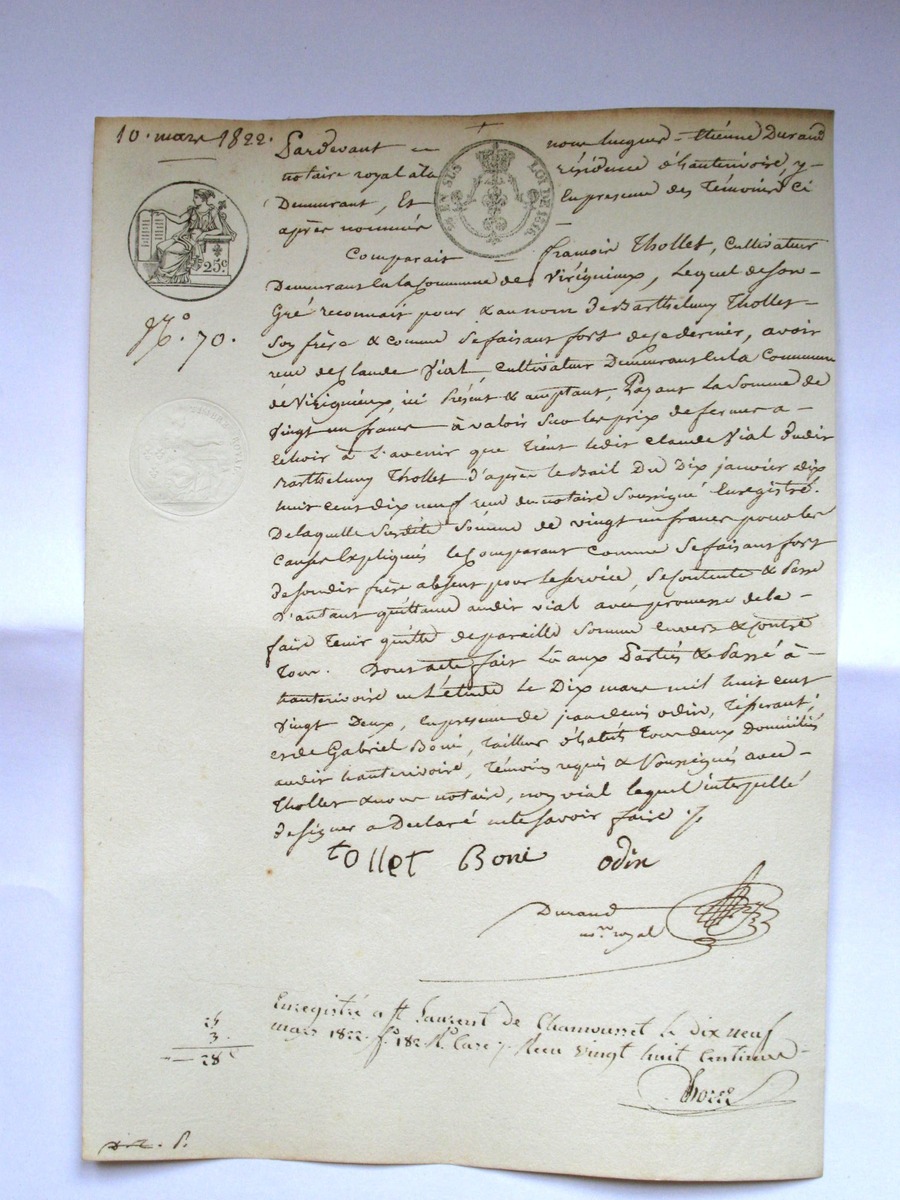 10. mars 1822.
Pardevant nous hugues - Etiénne Durand
notaire royal à la résidence d'hauterivoire, y -
Demeurant, Et En presence des Témoins ci
après nommés
25 EN SUS LOI DE 1816.
25c
Comparait françois Thollet, Cultivateur
Demeurant En la Commune de Virigneux, Lequel de Son -
Gré reconnait pour & au nom de Barthelemy Thollet -
Son frère & comme Se faisant fort de ce dernier, avoir
N.o 70.
reçu de Claude Vial Cultivateur Demeurant En la Commune
de Virignieux, ici Présent & acceptant, Payant La Somme de
Vingt un francs à valoir Sur les prix de fermes a -
Echoir à L'avenir que Tient ledit Claude Vial dudit
Barthelemy Thollet d'après le Bail Du Dix janvier dix
huit cent dix neuf reçu du notaire Soussigné Enregistré.
De laquelle Susdite Somme de vingt un francs pour les
Causes Expliqués le Comparant Comme Se faisant fort
de Son dit frère absent pour le Service, Se Contente & Passe
D'autant quittance audit vial avec promesse de la -
faire Tenir quitte de pareille Somme envers & Contre
Tous. Dont acte fait Lû aux Parties & Passé à -
hauterivoire en L'étude Le Dix mars mil huit cent
Vingt Deux, En presence de jean denis odin,
et de Gabriel Boni, Tailleur d'habits Tous deux domiciliés
audit hauterivoire, Témoins requis & Soussignés avec -
Thollet & nous notaire, non vial lequel interpellé
de Signer a Déclaré ne le Savoir faire
tOllet Boni odin
Durand
no.re royal
Enregistré a St Laurent de Chamousset le dix neuf
mars 1822. fo. 182 Ro. Case 7. Reçu vingt huit Centimes -
25
3.
28c